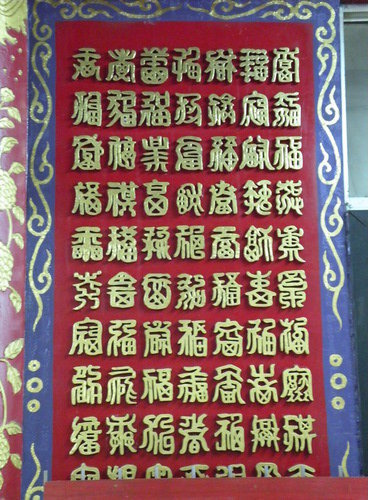 福福福福福福福福福
福福福福福福福福福
福福福福福福福福福
福福福福福福福福福
福福福福福福福福福
福福福福福福福福福
福福福福福福福福福